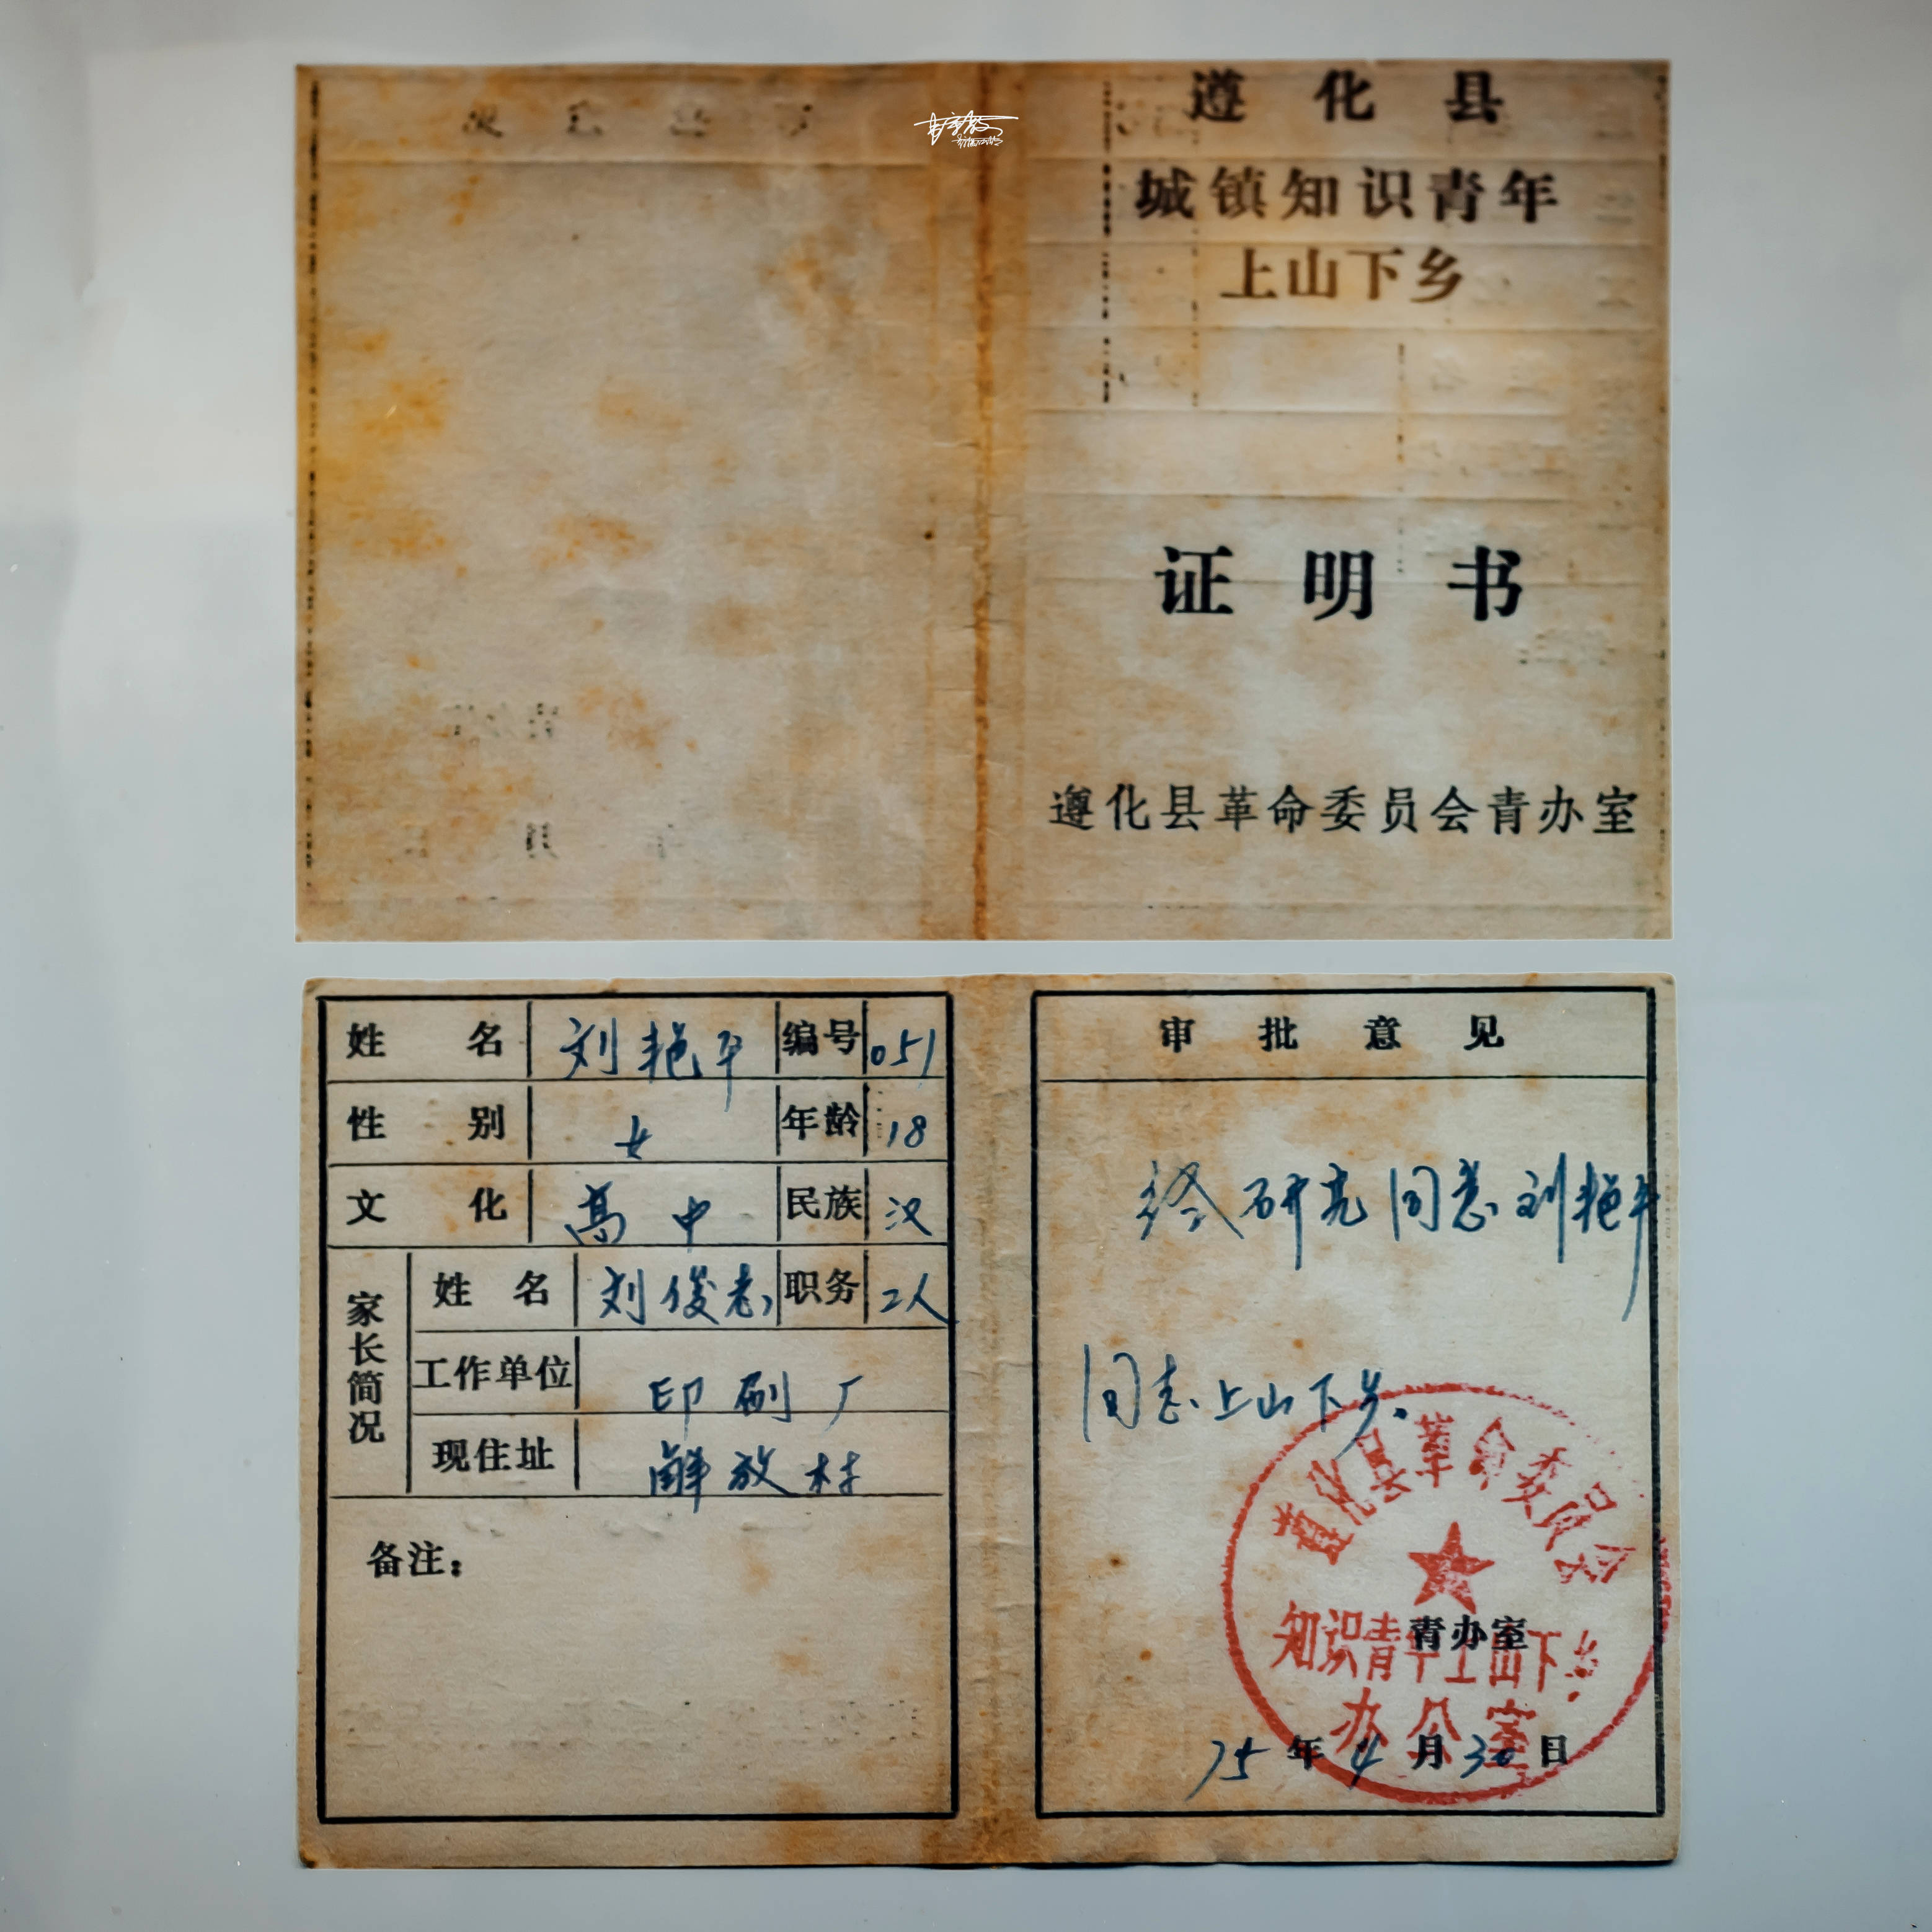 遵化县
城镇知识青年
上山下乡
证明书
遵化县革命委员会青办室
姓名 刘艳平 编号 051
性别 女 年龄 18
文化 高中 民族 汉
家长简况
姓名 刘俊志 职务 工人
工作单位 印刷厂
现住址 解放村
备注：
审批意见
经研究同意刘艳平
同志上山下乡.
遵化县革命委员会
知识青年上山下乡
办公室
青办室
75年4月30日